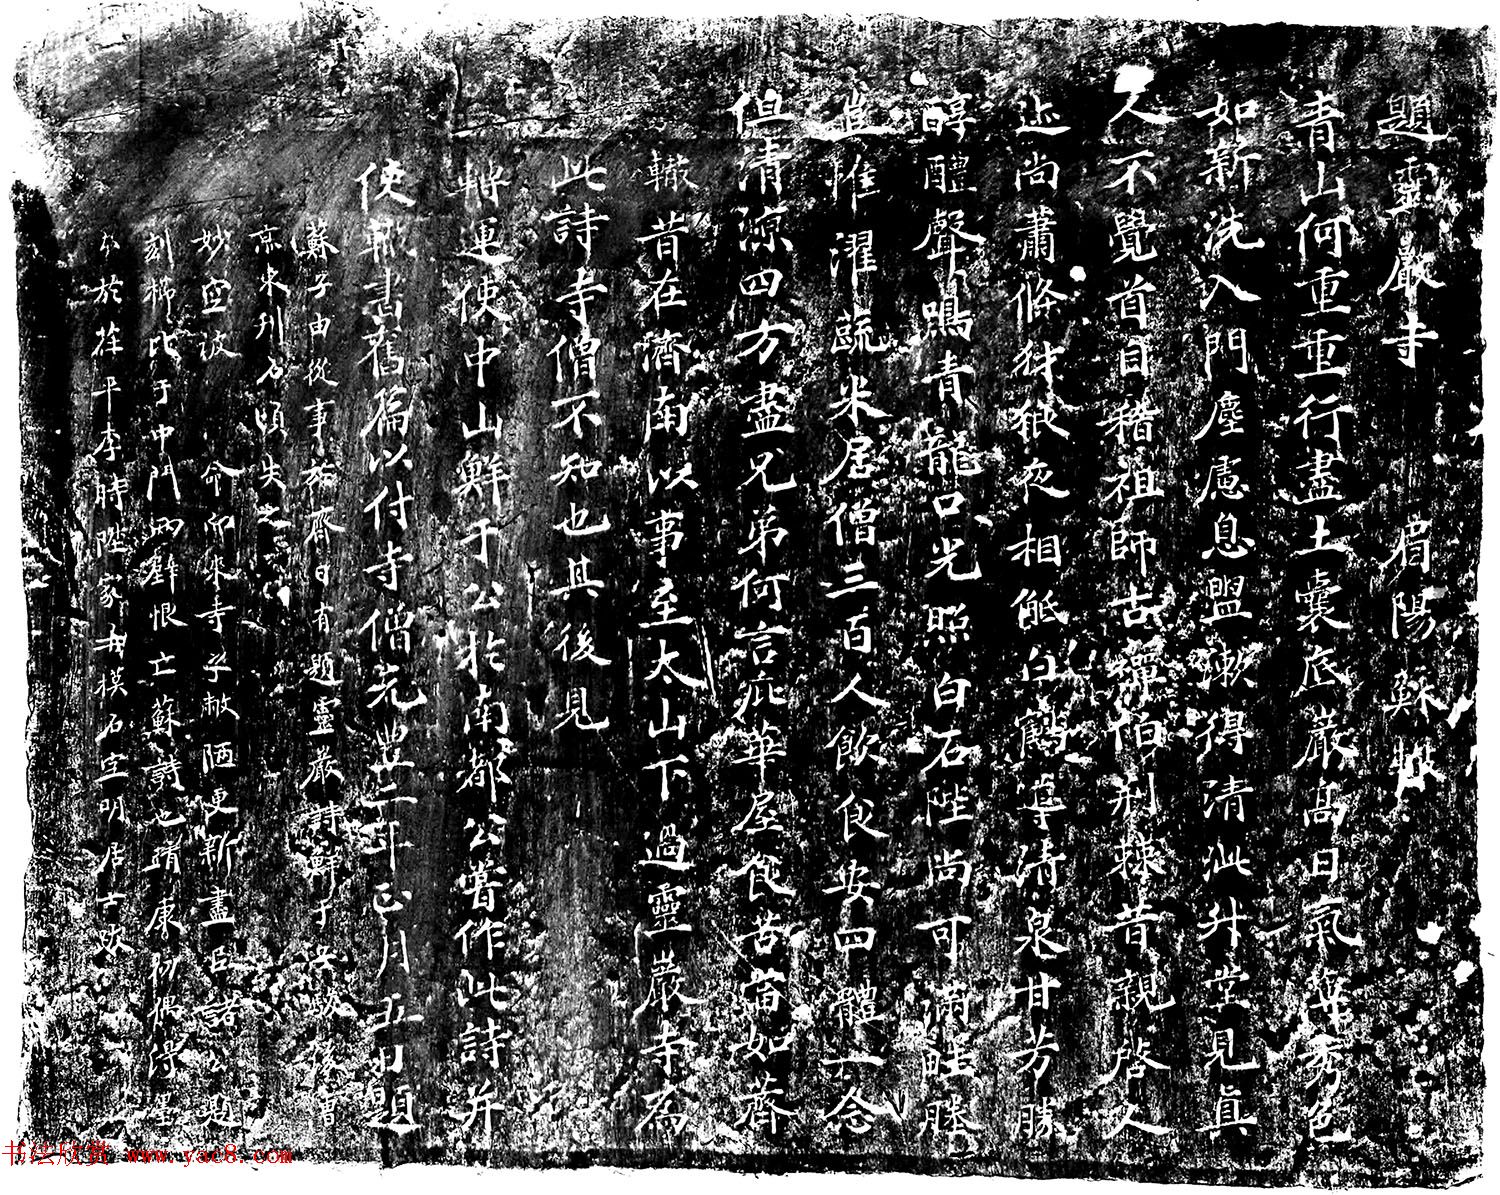 題靈巖寺 眉陽蘇轍
青山何重重行盡土囊底巖高日氣薄秀色
如新洗入門塵慮息盥漱得清泚升堂見真
人不覺首自稽祖師古禪伯荆棘昔親啓人
迹尚蕭條豺狼夜相觝白鶴導清泉甘芳勝
醇醴聲鳴青龍口光照白石陛尚可滿畦塍
豈惟濯蔬米居僧三百人飲食安四體一念
但清凉四方盡兄弟何言庇華屋食苦當如薺
轍昔在濟南以事至太山下過靈巖寺為
此詩寺僧不知也其後見
轉運使中山鮮于公於南都公嘗作此詩并
使轍書舊篇以付寺僧元豊二年正月五日題
蘇子由從事於齊日有題靈巖詩鮮于
京東刊石頃失之
妙空被 命而來寺宇敝陋更新盡
刻 比于中門 恨亡蘇詩也靖康 偶得墨
本於茌平李時陞家 模石宣明居士跋
书法欣赏 www.yac8.com